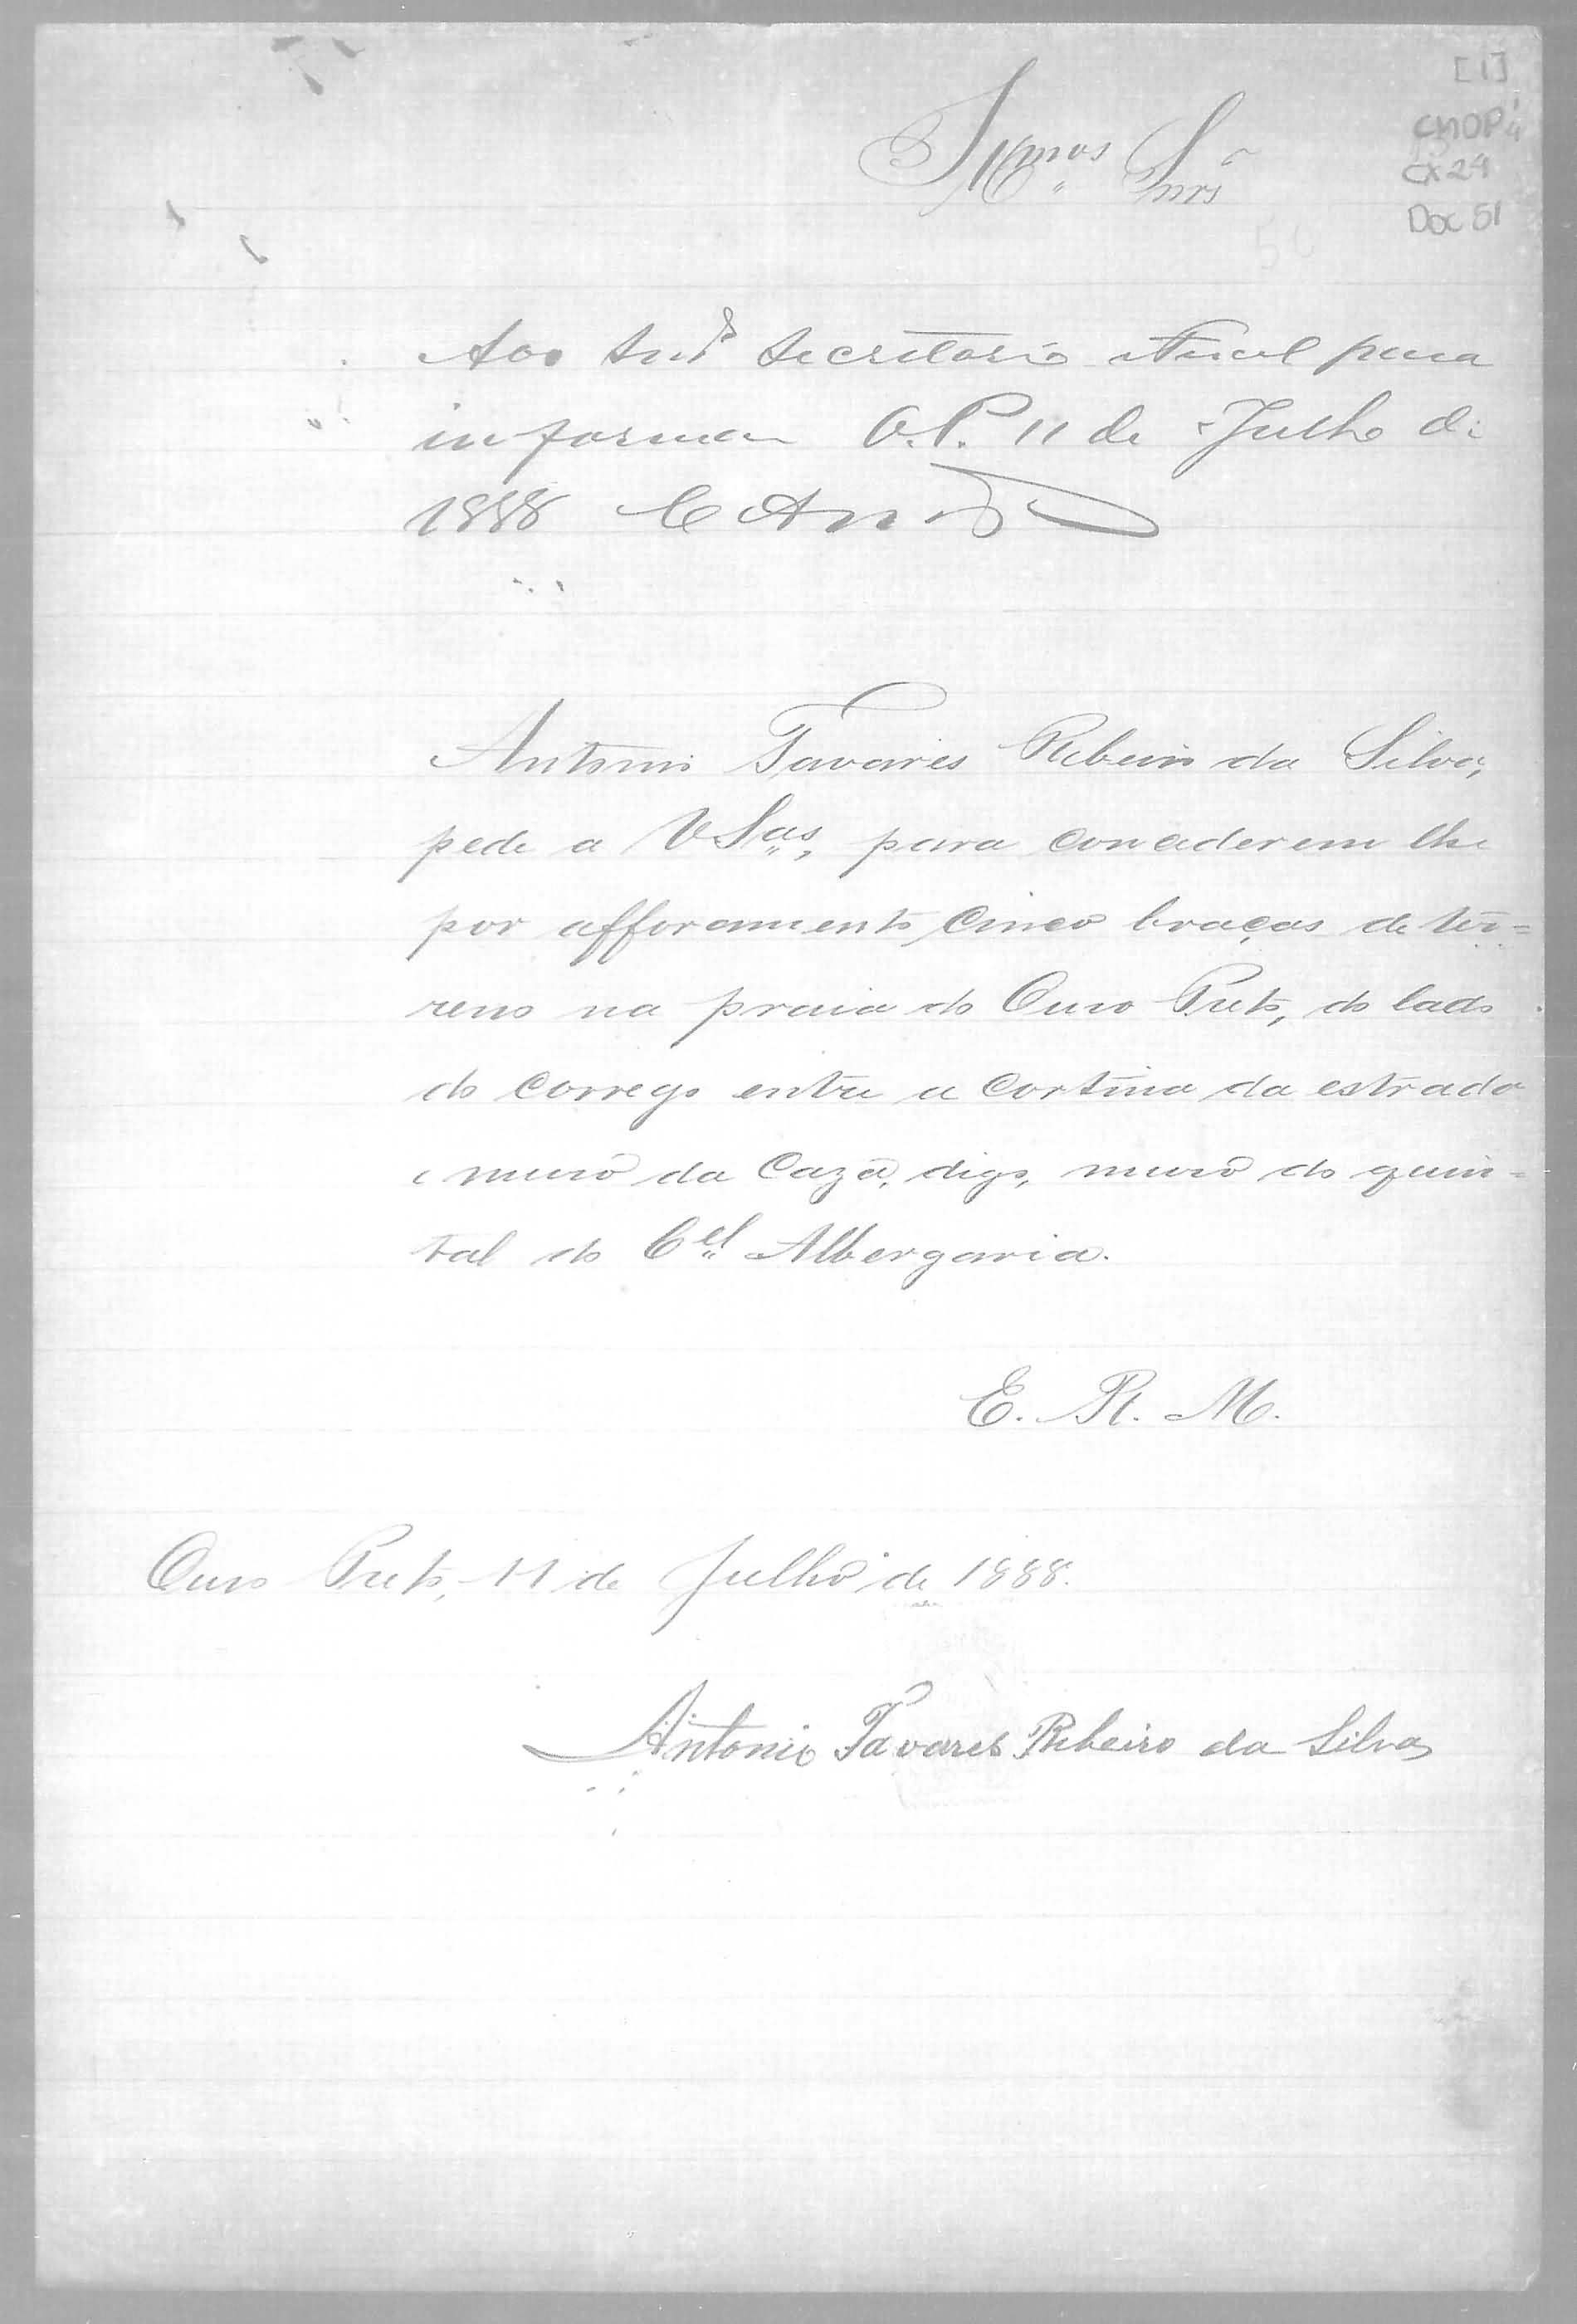 [1]
CMOP
CX 24
Doc 51
Illmos Snrs
Aos Snrs Secretario e Fiscal para
informar O. P. 11 de Julho de
1888
Antonio Tavares Ribeiro da Silva,
pede a V Sas, para concederem lhe
por afforamento cinco braças de ter=
reno na praia do Ouro Preto, do lado
do corrego entre a cortina da estrada
e muro da Caza, digo, muro do quin=
tal do Cel Albergaria.
E. R. M.
Ouro Preto, 11 de Julho de 1888.
Antonio Tavares Ribeiro da Silva